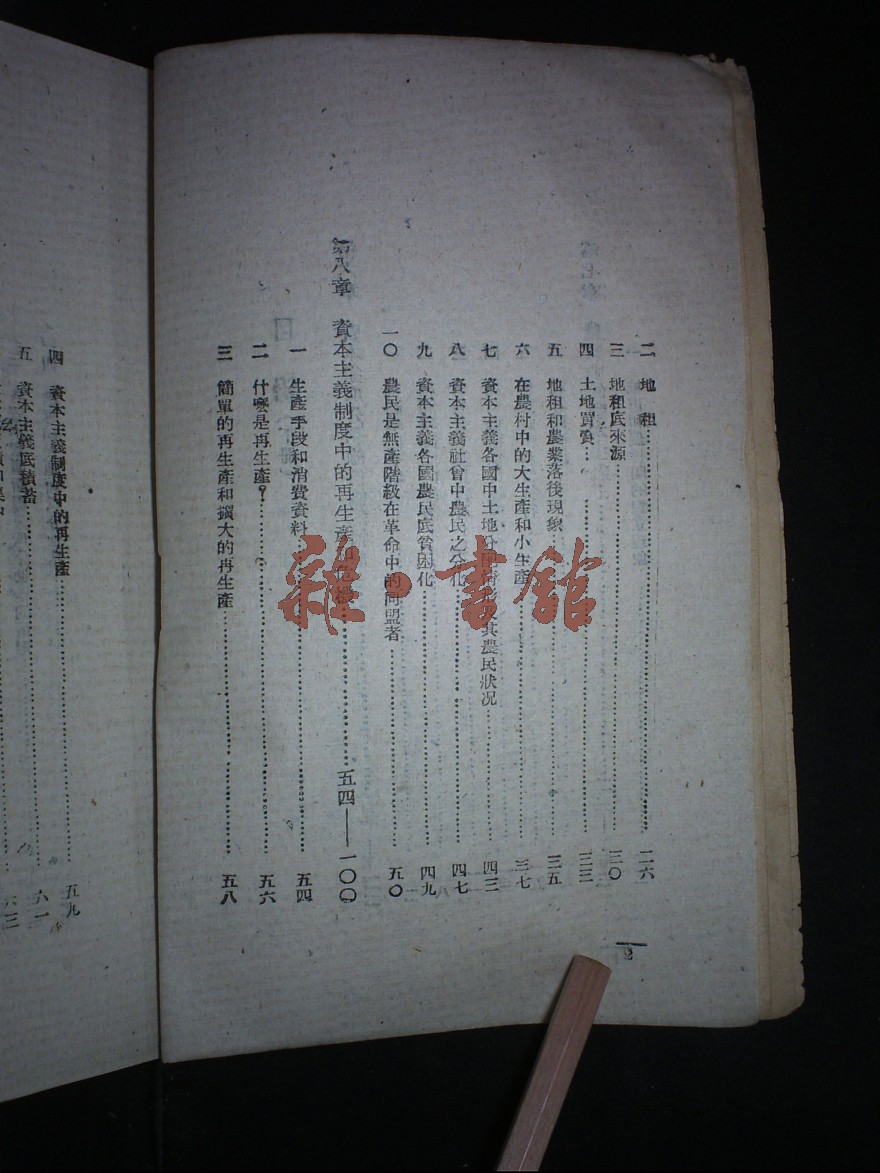 二 地 租 二六
三 地租底來源 三〇
四 土地買賣 三三
五 地租和農業落後現象 三五
六 在農村中的大生產和小生產 三七
七 資本主義各國中土地分配情形及其農民狀况 四三
八 資本主義社會中農民之分化 四七
九 資本主義各國農民底貧困化 四九
一〇 農民是無產階級在革命中的同盟者 五〇
第八章 資本主義制度中的再生產和危機 五四——一〇〇
一 生產手段和消費資料 五四
二 什麼是再生產? 五六
三 簡單的再生產和擴大的再生產 五八
2
四 資本主義制度中的再生產 五九
五 資本主義底積蓄 六一
六三
雜·書館